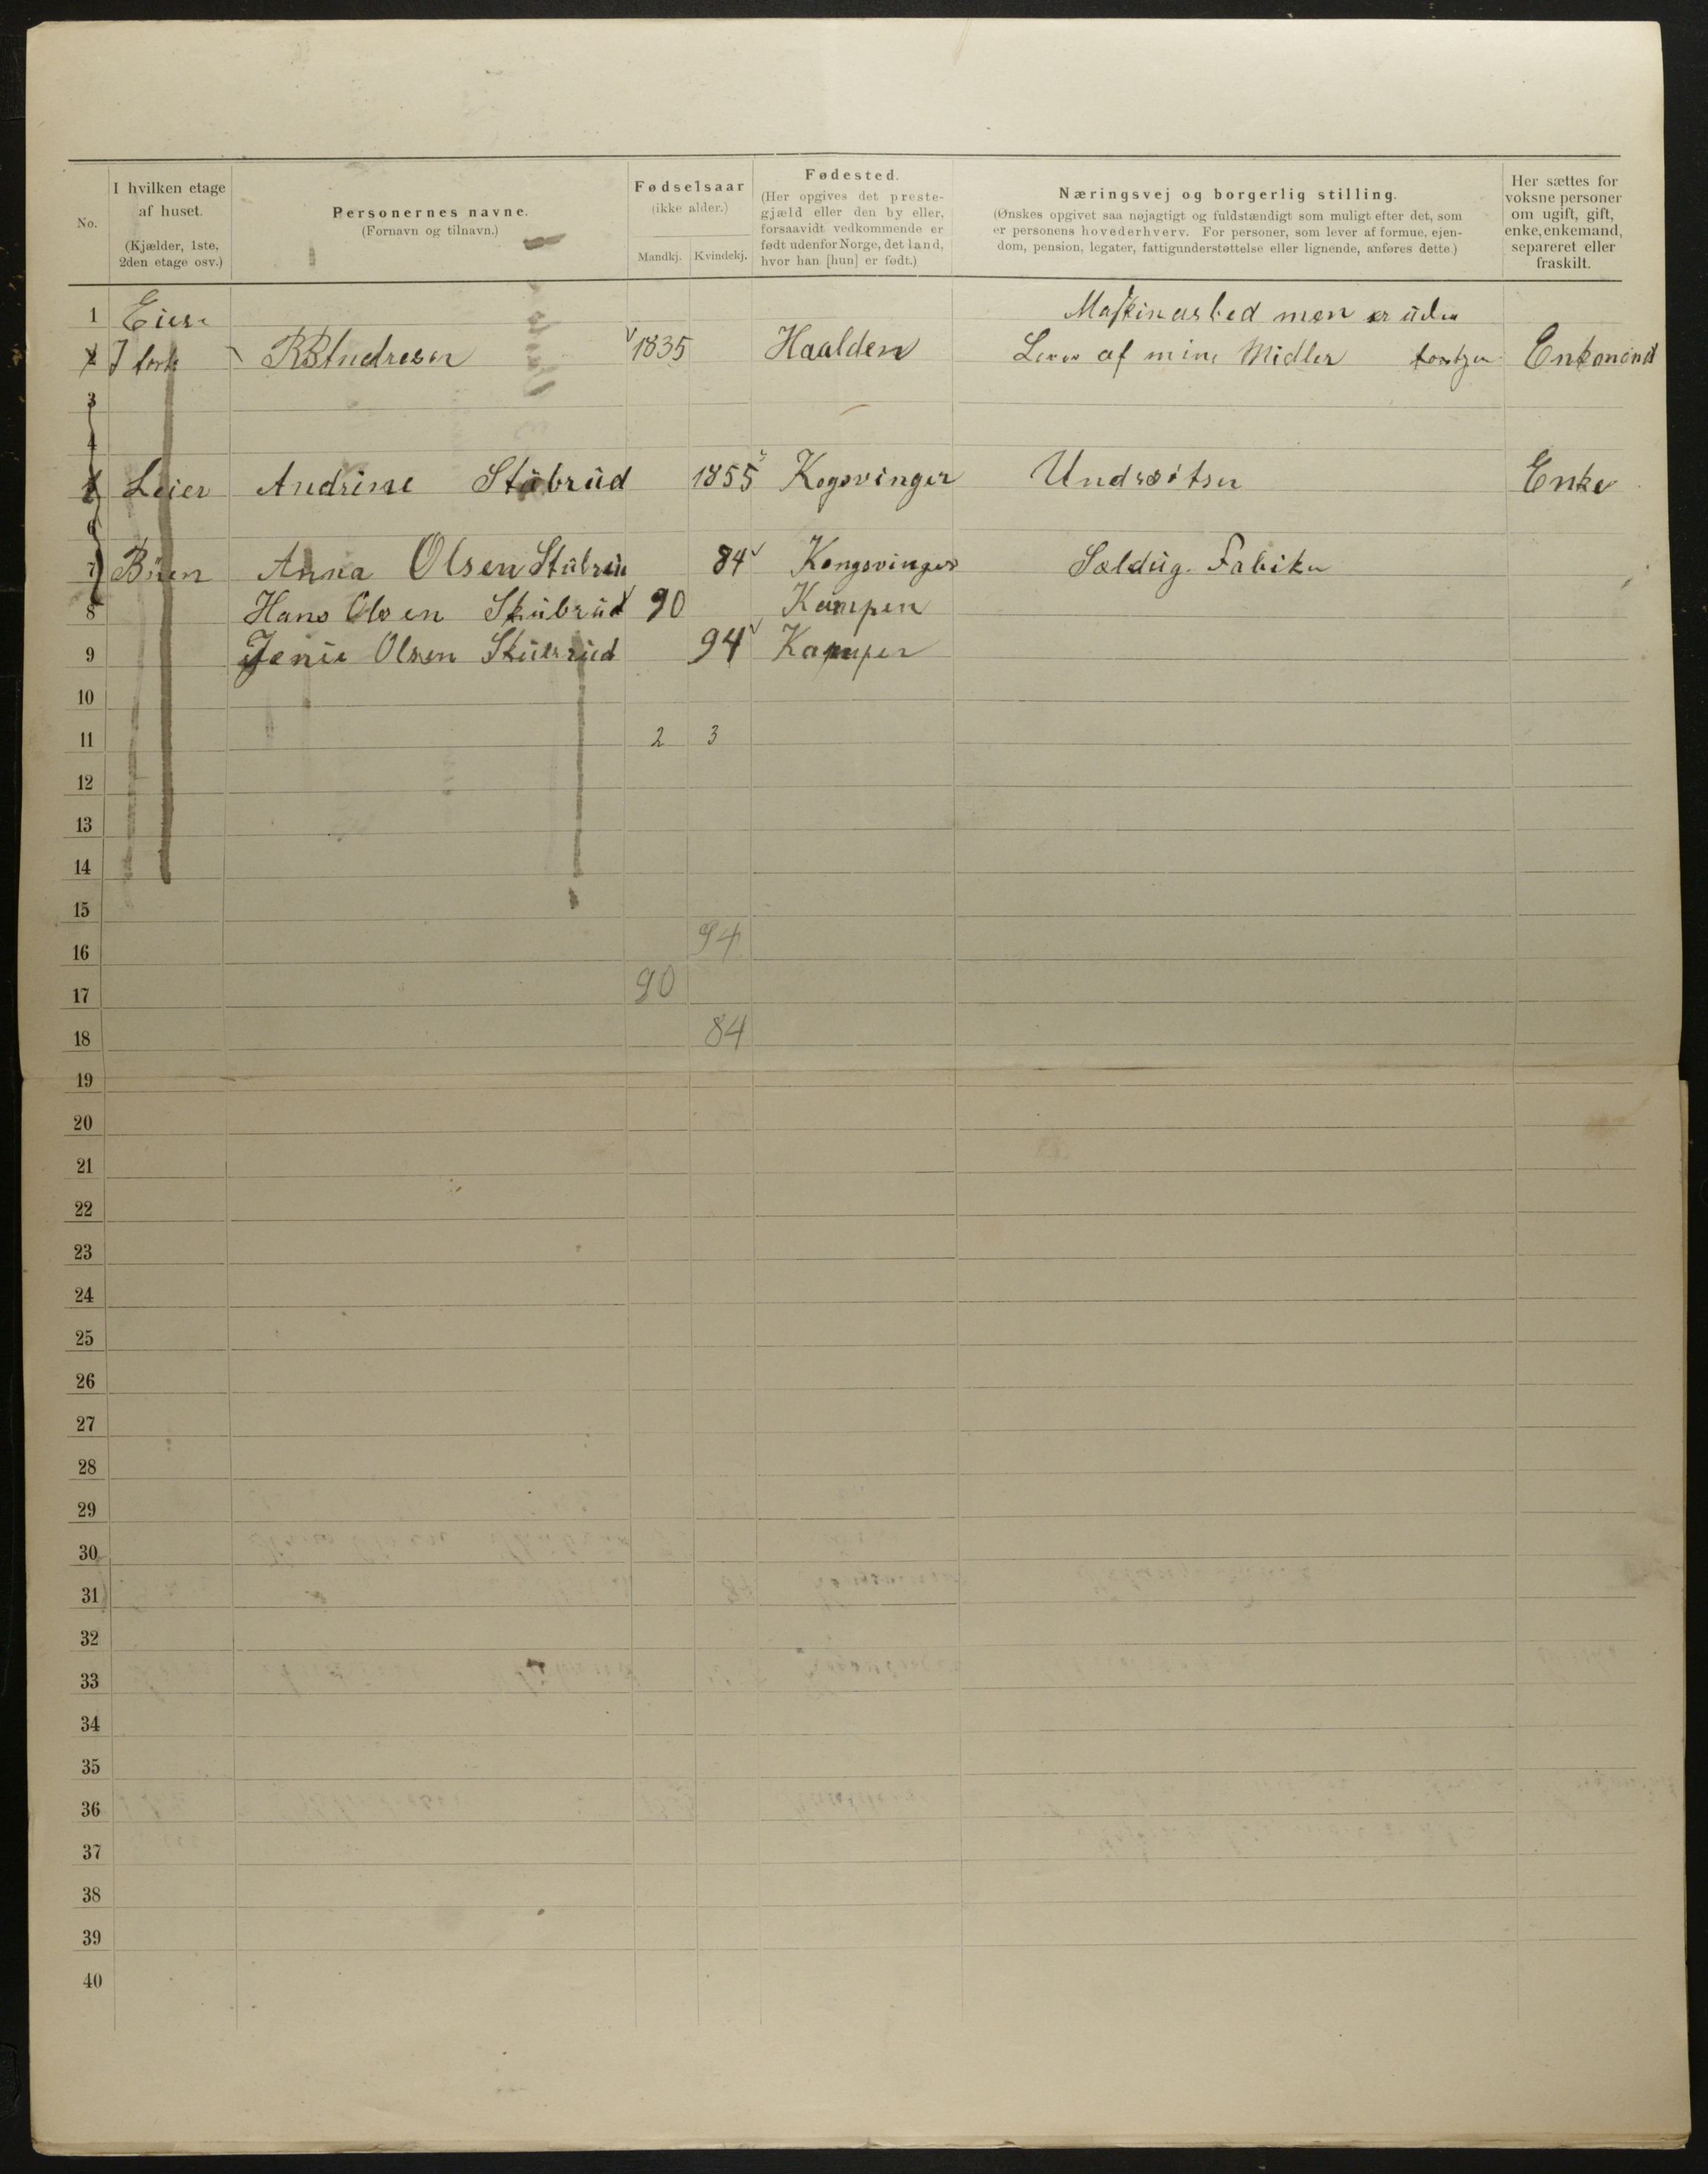 No.
I hvilken etage af huset.
(Kjælder, 1ste, 2den etage osv.)
Personernes navne.
(Fornavn og tilnavn.)
Fødselsaar
(ikke alder.)
Mandkj. Kvindekj.
Fødested.
(Her opgives det prestegjæld eller den by eller, forsaavidt vedkommende er født udenfor Norge, det land, hvor han [hun] er født.)
Næringsvej og borgerlig stilling.
(Ønskes opgivet saa nøjagtigt og fuldstændigt som muligt efter det, som er personens hovederhverv. For personer, som lever af formue, ejendom, pension, legater, fattigunderstøttelse eller lignende, anføres dette.)
Her sættes for voksne personer om ugift, gift, enke, enkemand, separeret eller fraskilt.
1 Eier Maskinarbed men er uden
2 1835 Haalden Lever af mine Midler Enkemand
3
4
5 Leier Andrine Stubrud 1855 Kogsvinger Enke
6
7 Anna Olsen Stubrud 84 Kongsvinger Fabiken
8 Hans Olsen Skubrud 90 Kampen
9 Jenie Olsen Skubrud 94 Kampen
10
11 2 3
12
13
14
15
16 94
17 90
18 84
19
20
21
22
23
24
25
26
27
28
29
30
31
32
33
34
35
36
37
38
39
40